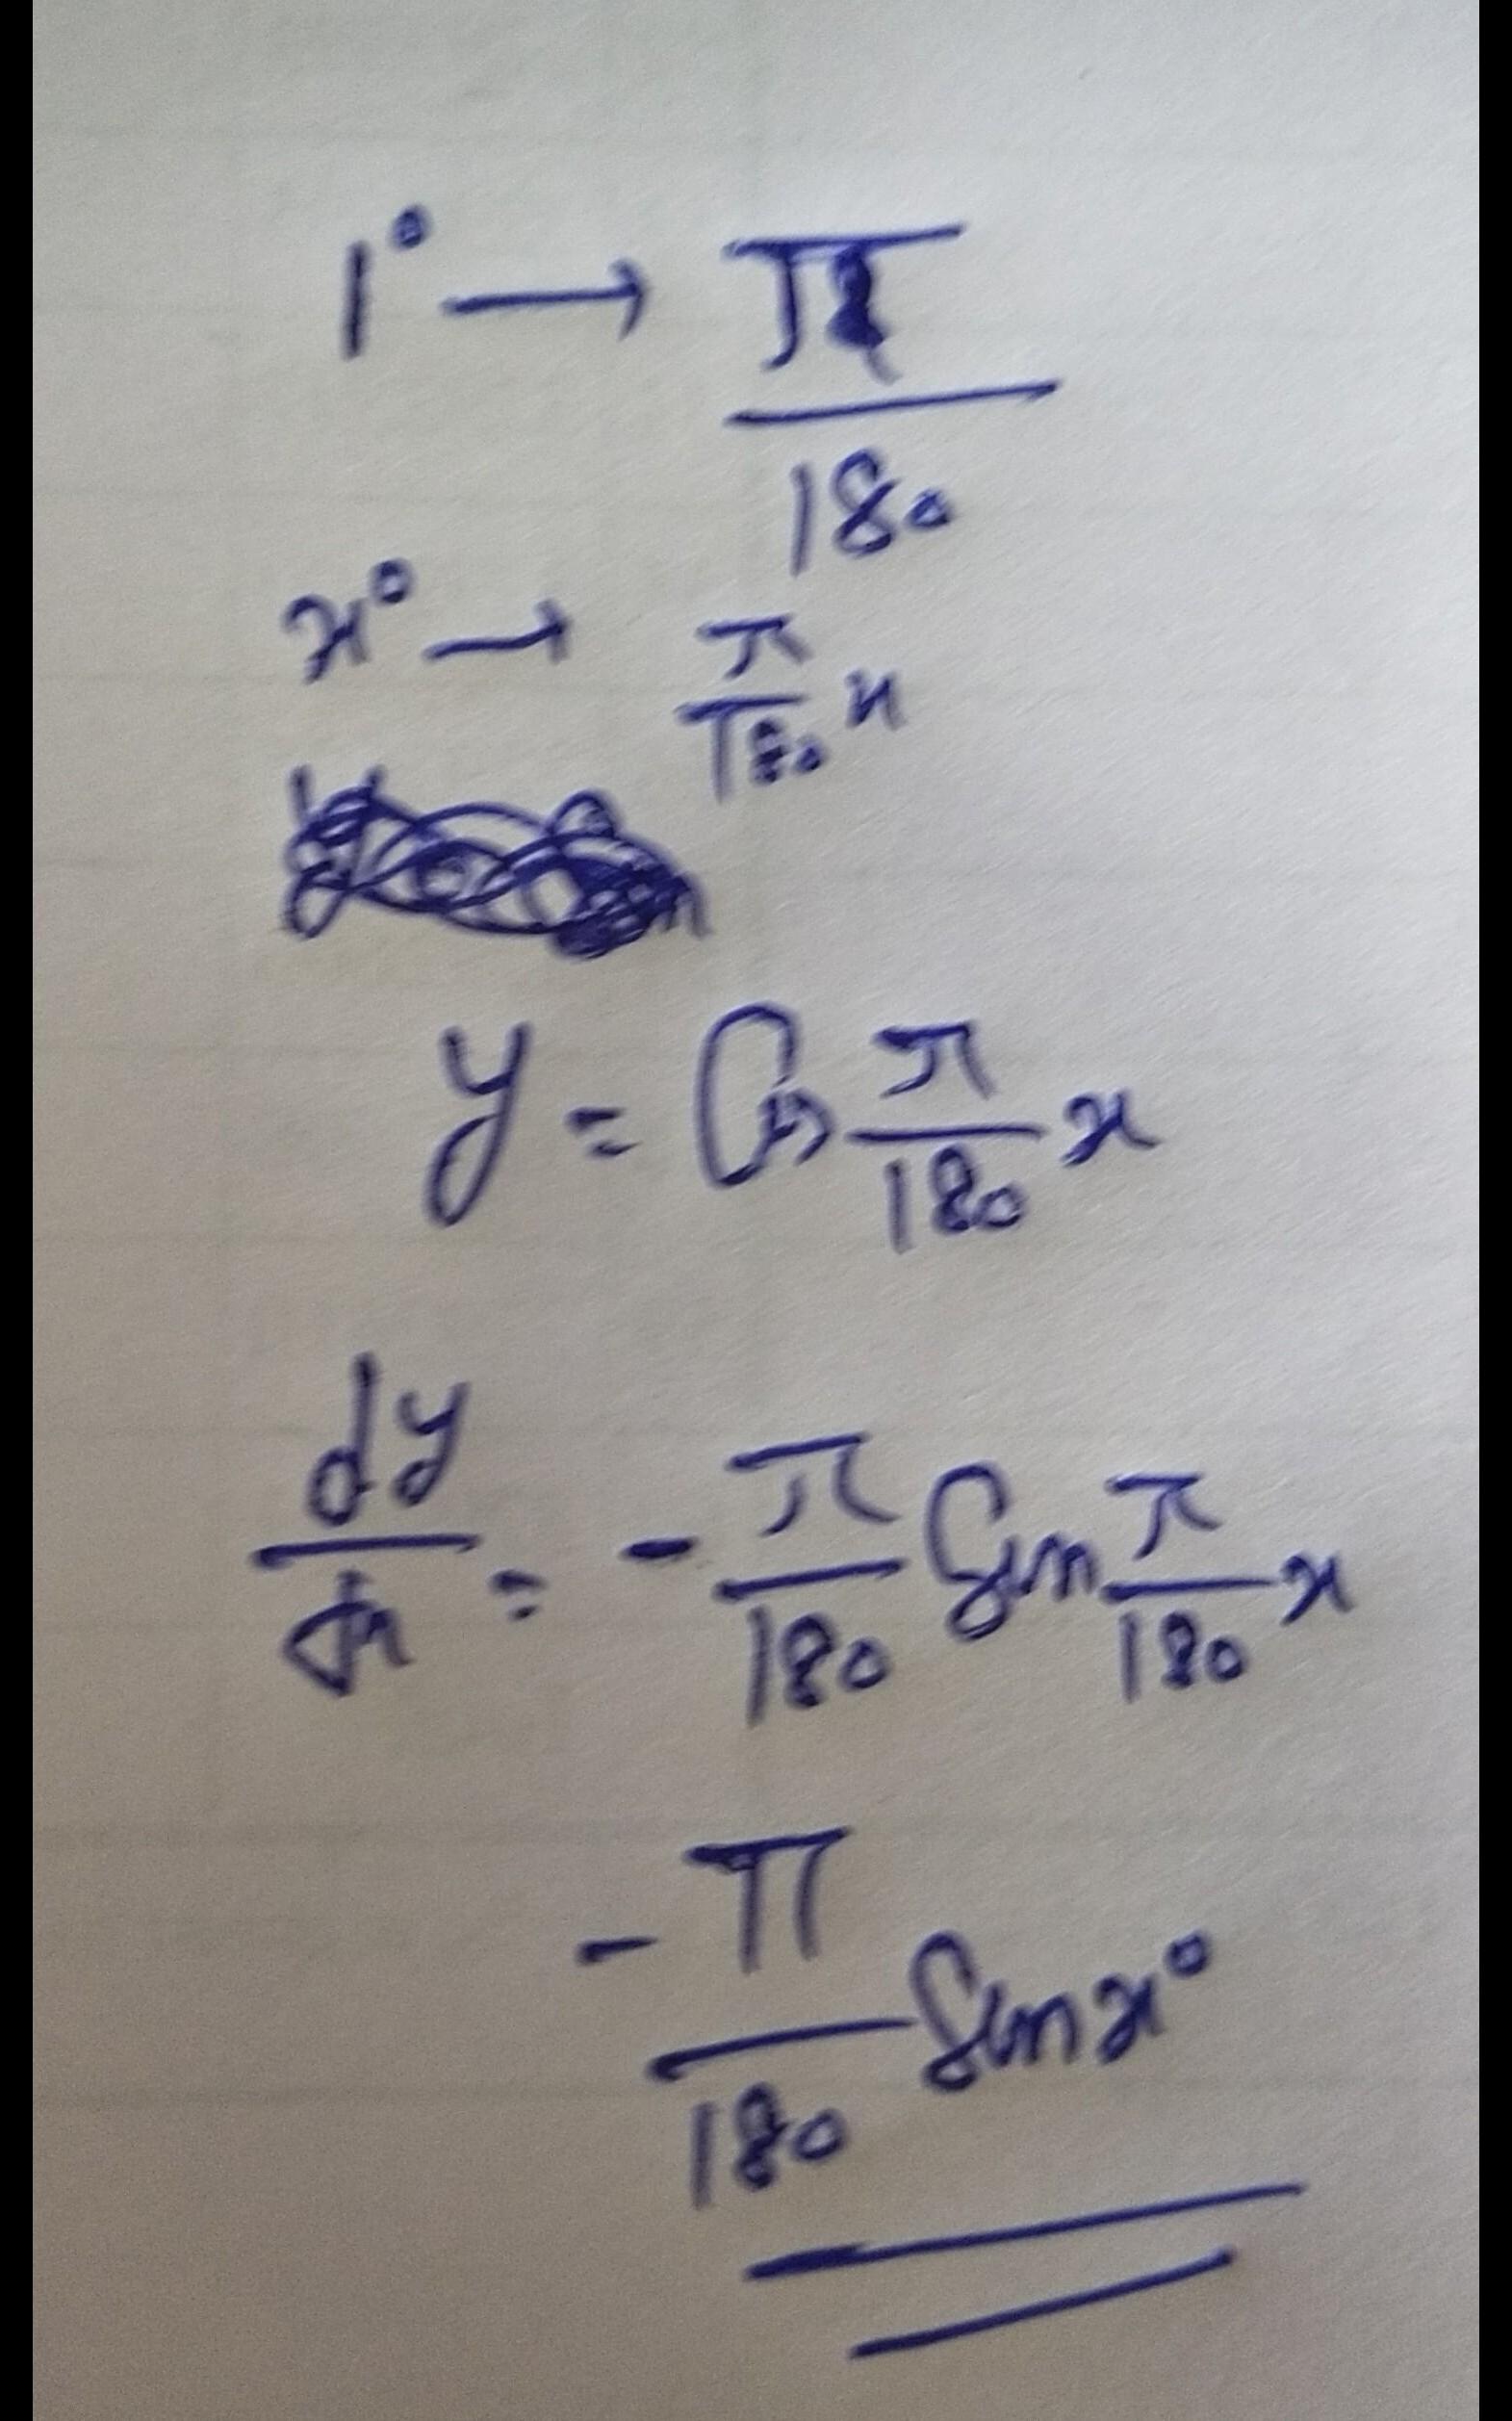 1° → π/180
x° → π/180 x
y = Cos π/180 x
dy/dx = - π/180 Sin π/180 x
- π/180 Sin x°